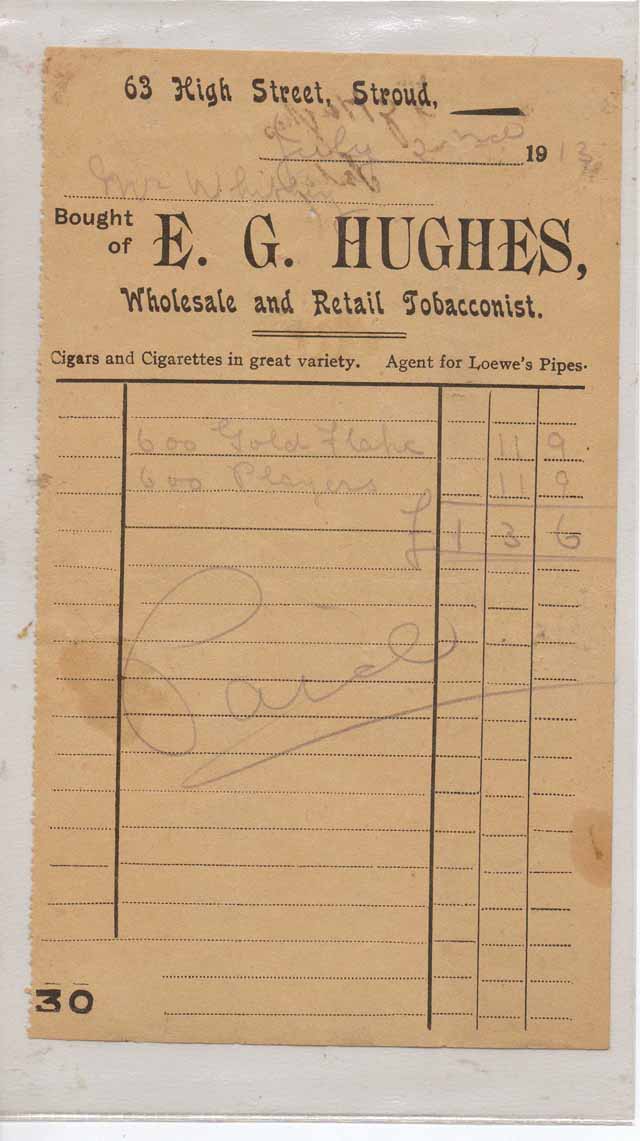 63 High Street, Stroud,
July 22nd 1913
Mr
Bought of E. G. HUGHES,
Wholesale and Retail Tobacconist.
Cigars and Cigarettes in great variety. Agent for Loewe's Pipes.
600 Gold Flake 11 9
600 Players 11 9
£1 3 6
Paid
30